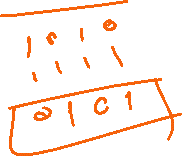 1010
1111
0101